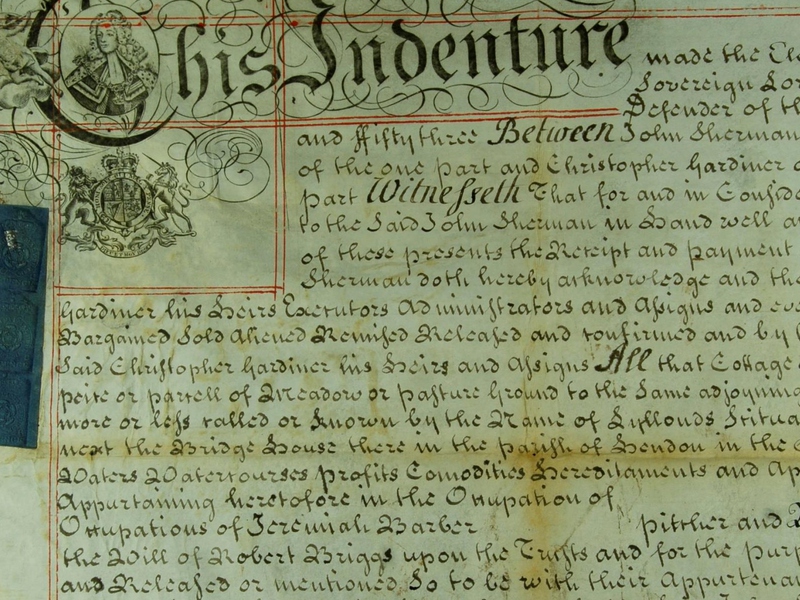 This Indenture made the Ele
Sovereign Lor
Defender of th
and ffifty three Between John Sherman
of the one part and Christopher Gardiner o
part Witnesseth That for and in Consid
to the Said John Sherman in Hand well a
of these presents the Receipt and payment
Sherman doth hereby acknowledge and the
Gardiner his Heirs Executors Administrators and Assigns and eve
Bargained Sold Aliened Remised Released and confirmed and by
Said Christopher Gardiner his Heirs and Assigns All that Cottage
peice or parcell of Meadow or pasture Ground to the Same adjoyning
more or less called or known by the Name of Lyllonds Scitua
next the Bridge House there in the parish of Hendon in the
Waters Watercourses profits Comodities Hereditaments and Ap
Appurtaining heretofore in the Occupation of
Occupations of Jeremiah Barber pitcher and
the Will of Robert Briggs upon the Trusts and for the purp
and Released or mentioned So to be with their Appurtenan